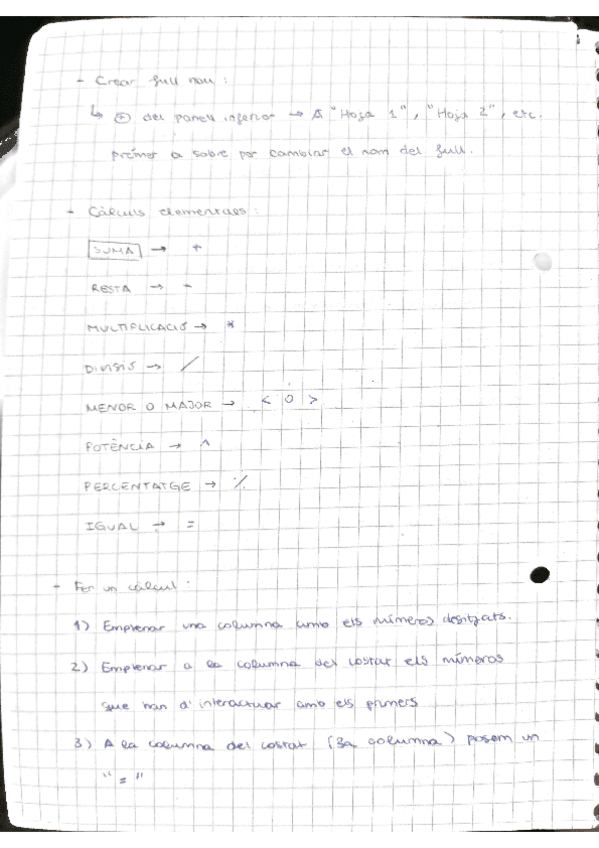 - Crear full nou :
↳ ⊕ del panell inferior → A "Hoja 1", "Hoja 2", etc.
prémer a sobre per cambiar el nom del full.
- Càlculs elementals :
SUMA → +
RESTA → -
MULTIPLICACIÓ → *
DIVISIÓ → /
MENOR O MAJOR → < O >
POTÈNCIA → ^
PERCENTATGE → %
IGUAL → =
- Fer un càlcul :
1) Emplenar una columna amb els números desitjats.
2) Emplenar a la columna del costat els números
que han d'interactuar amb els primers
3) A la columna del costat (3a columna) posem un
"="